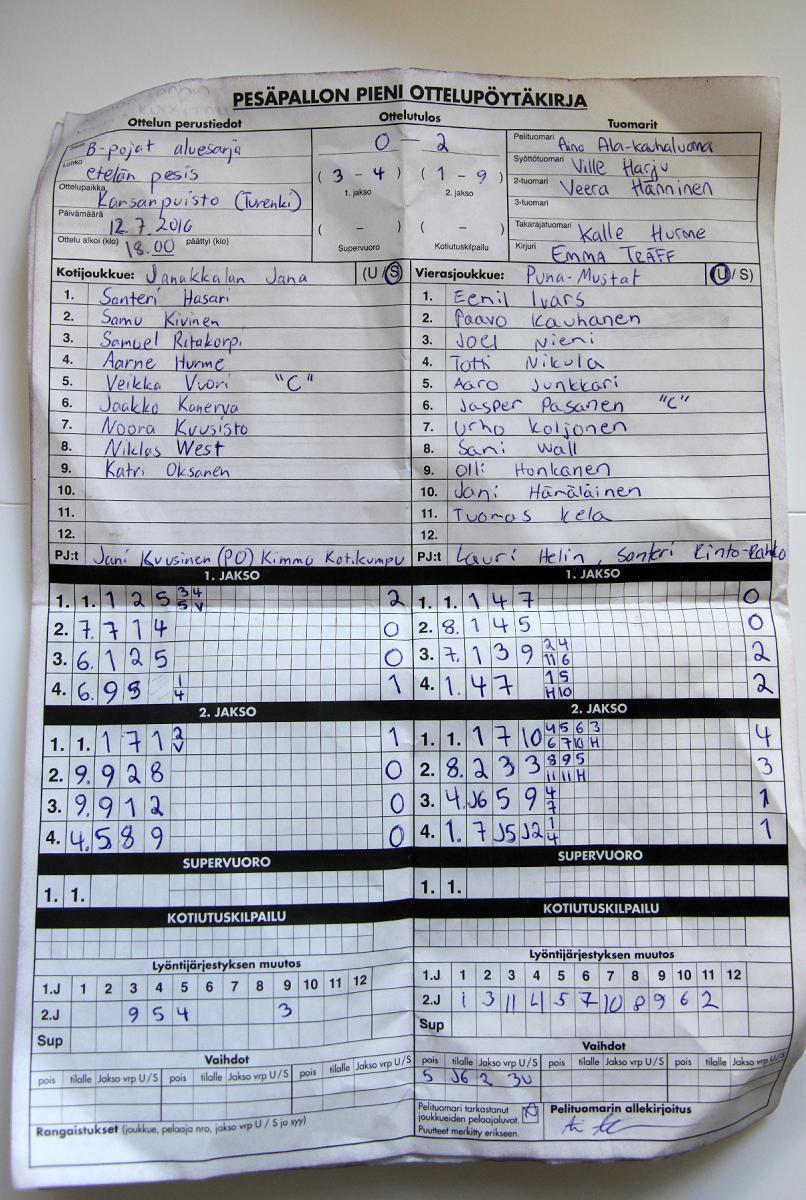 PESÄPALLON PIENI OTTELUPÖYTÄKIRJA
Ottelun perustiedot
Ottelutulos
Tuomarit
Sarja B-pojat aluesarja
Lohko etelän pesis
Ottelupaikka Kansanpuisto (Turenki)
Päivämäärä 12.7.2016
Ottelu alkoi (klo) 18.00 päättyi (klo)
0 - 2
( 3 - 4 ) ( 1 - 9 )
1. jakso 2. jakso
( - ) ( - )
Supervuoro Kotiutuskilpailu
Pelituomari Aino Ala-Kauhaluoma
Syöttötuomari Ville Harju
2-tuomari Veera Hänninen
3-tuomari
Takarajatuomari Kalle Hurme
Kirjuri EMMA TRÄFF
Kotijoukkue: Janakkalan Jana (U/S)
1. Santeri Hasari
2. Samu Kivinen
3. Samuel Ritakorpi
4. Aarne Hurme
5. Veikka Vuori "C"
6. Jaakko Kanerva
7. Noora Kuusisto
8. Niklas West
9. Katri Oksanen
10.
11.
12.
PJ:t Jani Kuusinen (PO) Kimmo Kotikumpu
Vierasjoukkue: Puna-Mustat (U/S)
1. Eemil Ivars
2. Paavo Kauhanen
3. Joel Niemi
4. Totti Nikula
5. Aaro Junkkari
6. Jasper Pasanen "C"
7. Urho Koljonen
8. Sami Wall
9. Olli Honkanen
10. Jani Hämäläinen
11. Tuomas Kela
12.
PJ:t Lauri Helin, Santeri Rinto-Rahko
1. JAKSO
1. 1. 1 2 5 3 4 5 V 2
2. 7. 7 1 4 0
3. 6. 1 2 5 0
4. 6. 9 8 1 4 1
2. JAKSO
1. 1. 1 7 1 2 V 1
2. 9. 9 2 8 0
3. 9. 9 1 2 0
4. 4. 5 8 9 0
SUPERVUORO
1. 1.
KOTIUTUSKILPAILU
Lyöntijärjestyksen muutos
1.J 1 2 3 4 5 6 7 8 9 10 11 12
2.J 9 5 4 3
Sup
Vaihdot
pois tilalle Jakso vrp U/S pois tilalle Jakso vrp U/S pois tilalle Jakso vrp U/S
Rangaistukset (joukkue, pelaaja nro, jakso vrp U / S ja syy)
1. JAKSO
1. 1. 1 4 7 0
2. 8. 1 4 5 0
3. 7. 1 3 9 2 4 11 6 2
4. 1. 4 7 1 5 H 10 2
2. JAKSO
1. 1. 1 7 10 4 5 6 3 6 7 10 H 4
2. 8. 2 3 3 8 9 5 11 11 H 3
3. 4. J6 5 9 4 7 1
4. 1. 7 J5 J2 1 4 1
SUPERVUORO
1. 1.
KOTIUTUSKILPAILU
Lyöntijärjestyksen muutos
1.J 1 2 3 4 5 6 7 8 9 10 11 12
2.J 1 3 11 4 5 7 10 8 9 6 2
Sup
Vaihdot
pois tilalle Jakso vrp U/S pois tilalle Jakso vrp U/S pois tilalle Jakso vrp U/S
5 J6 2 3U
Pelituomari tarkastanut
joukkueiden pelaajaluvat.
Puutteet merkitty erikseen.
Pelituomarin allekirjoitus